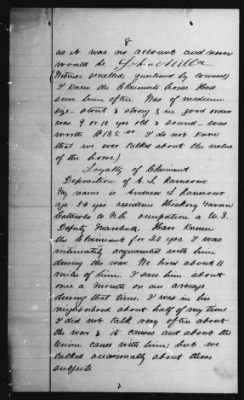 8
as it was no account and never
would be John Miller
(Witness recalled, questioned by counsel)
I knew the Claimants horse. Had
seen him often. Was of medium
size - stout & strong & in good order
was 9 or 10 yrs old & sound - was
worth $135.00 I do not know
that we ever talked about the value
of the horse)
Loyalty of Claimant
Deposition of A. L. Ramsour
My name is Andrew L Ramsour
age 58 yrs residence Hickory Tavern
Catawba Co N.C. occupation a U.S.
Deputy Marshall. Have known
the Claimant for 20 yrs. I was
intimately acquainted with him
during the war. We lived about 11
miles of him. I saw him about
once a month on an average
during that time. I was in his
neighborhood about half of my time
I did not talk very often about
the war & its causes and about the
Union cause with him; but we
talked occasionally about these
subjects